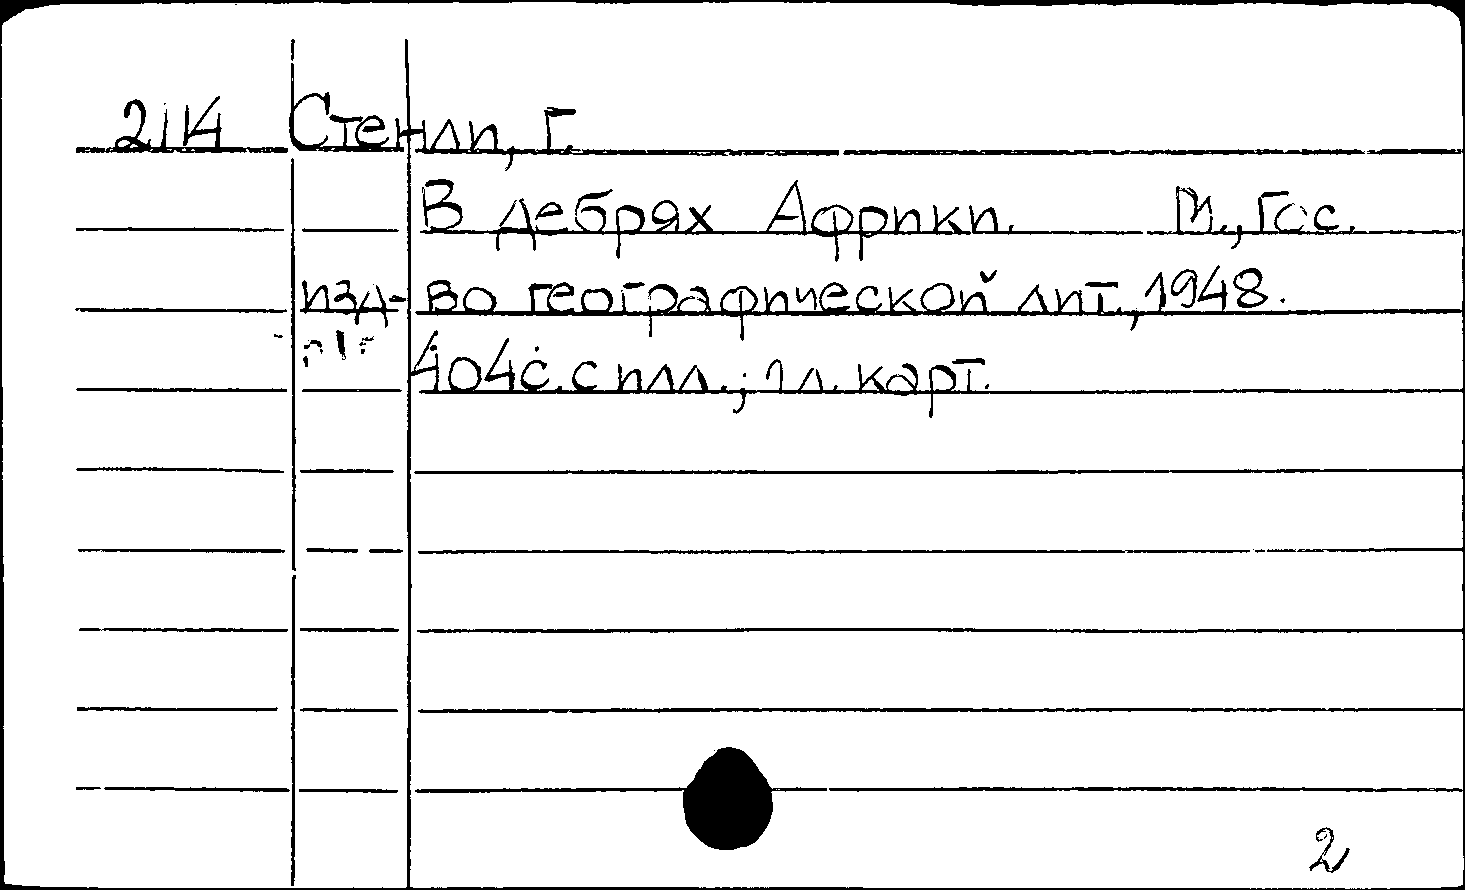 21К Стенли, Г.
В дебрях Африки. М., Гос.
изд-во географической лит., 1948.
404с. с илл.; 1 л. карт.
2